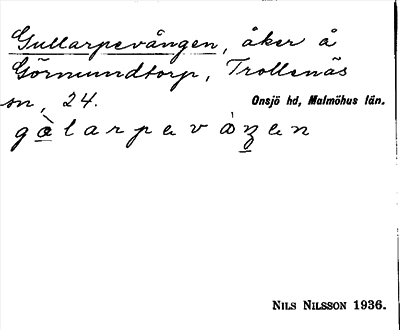 Gullarpevången, åker å
Görmundtorp, Trollenäs
sn, 24.
Onsjö hd, Malmöhus län.
NILS NILSSON 1936.